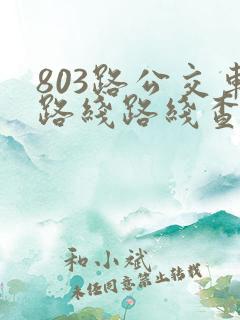 803路公交車
路线路线查
和小斌
未经同意禁止转载